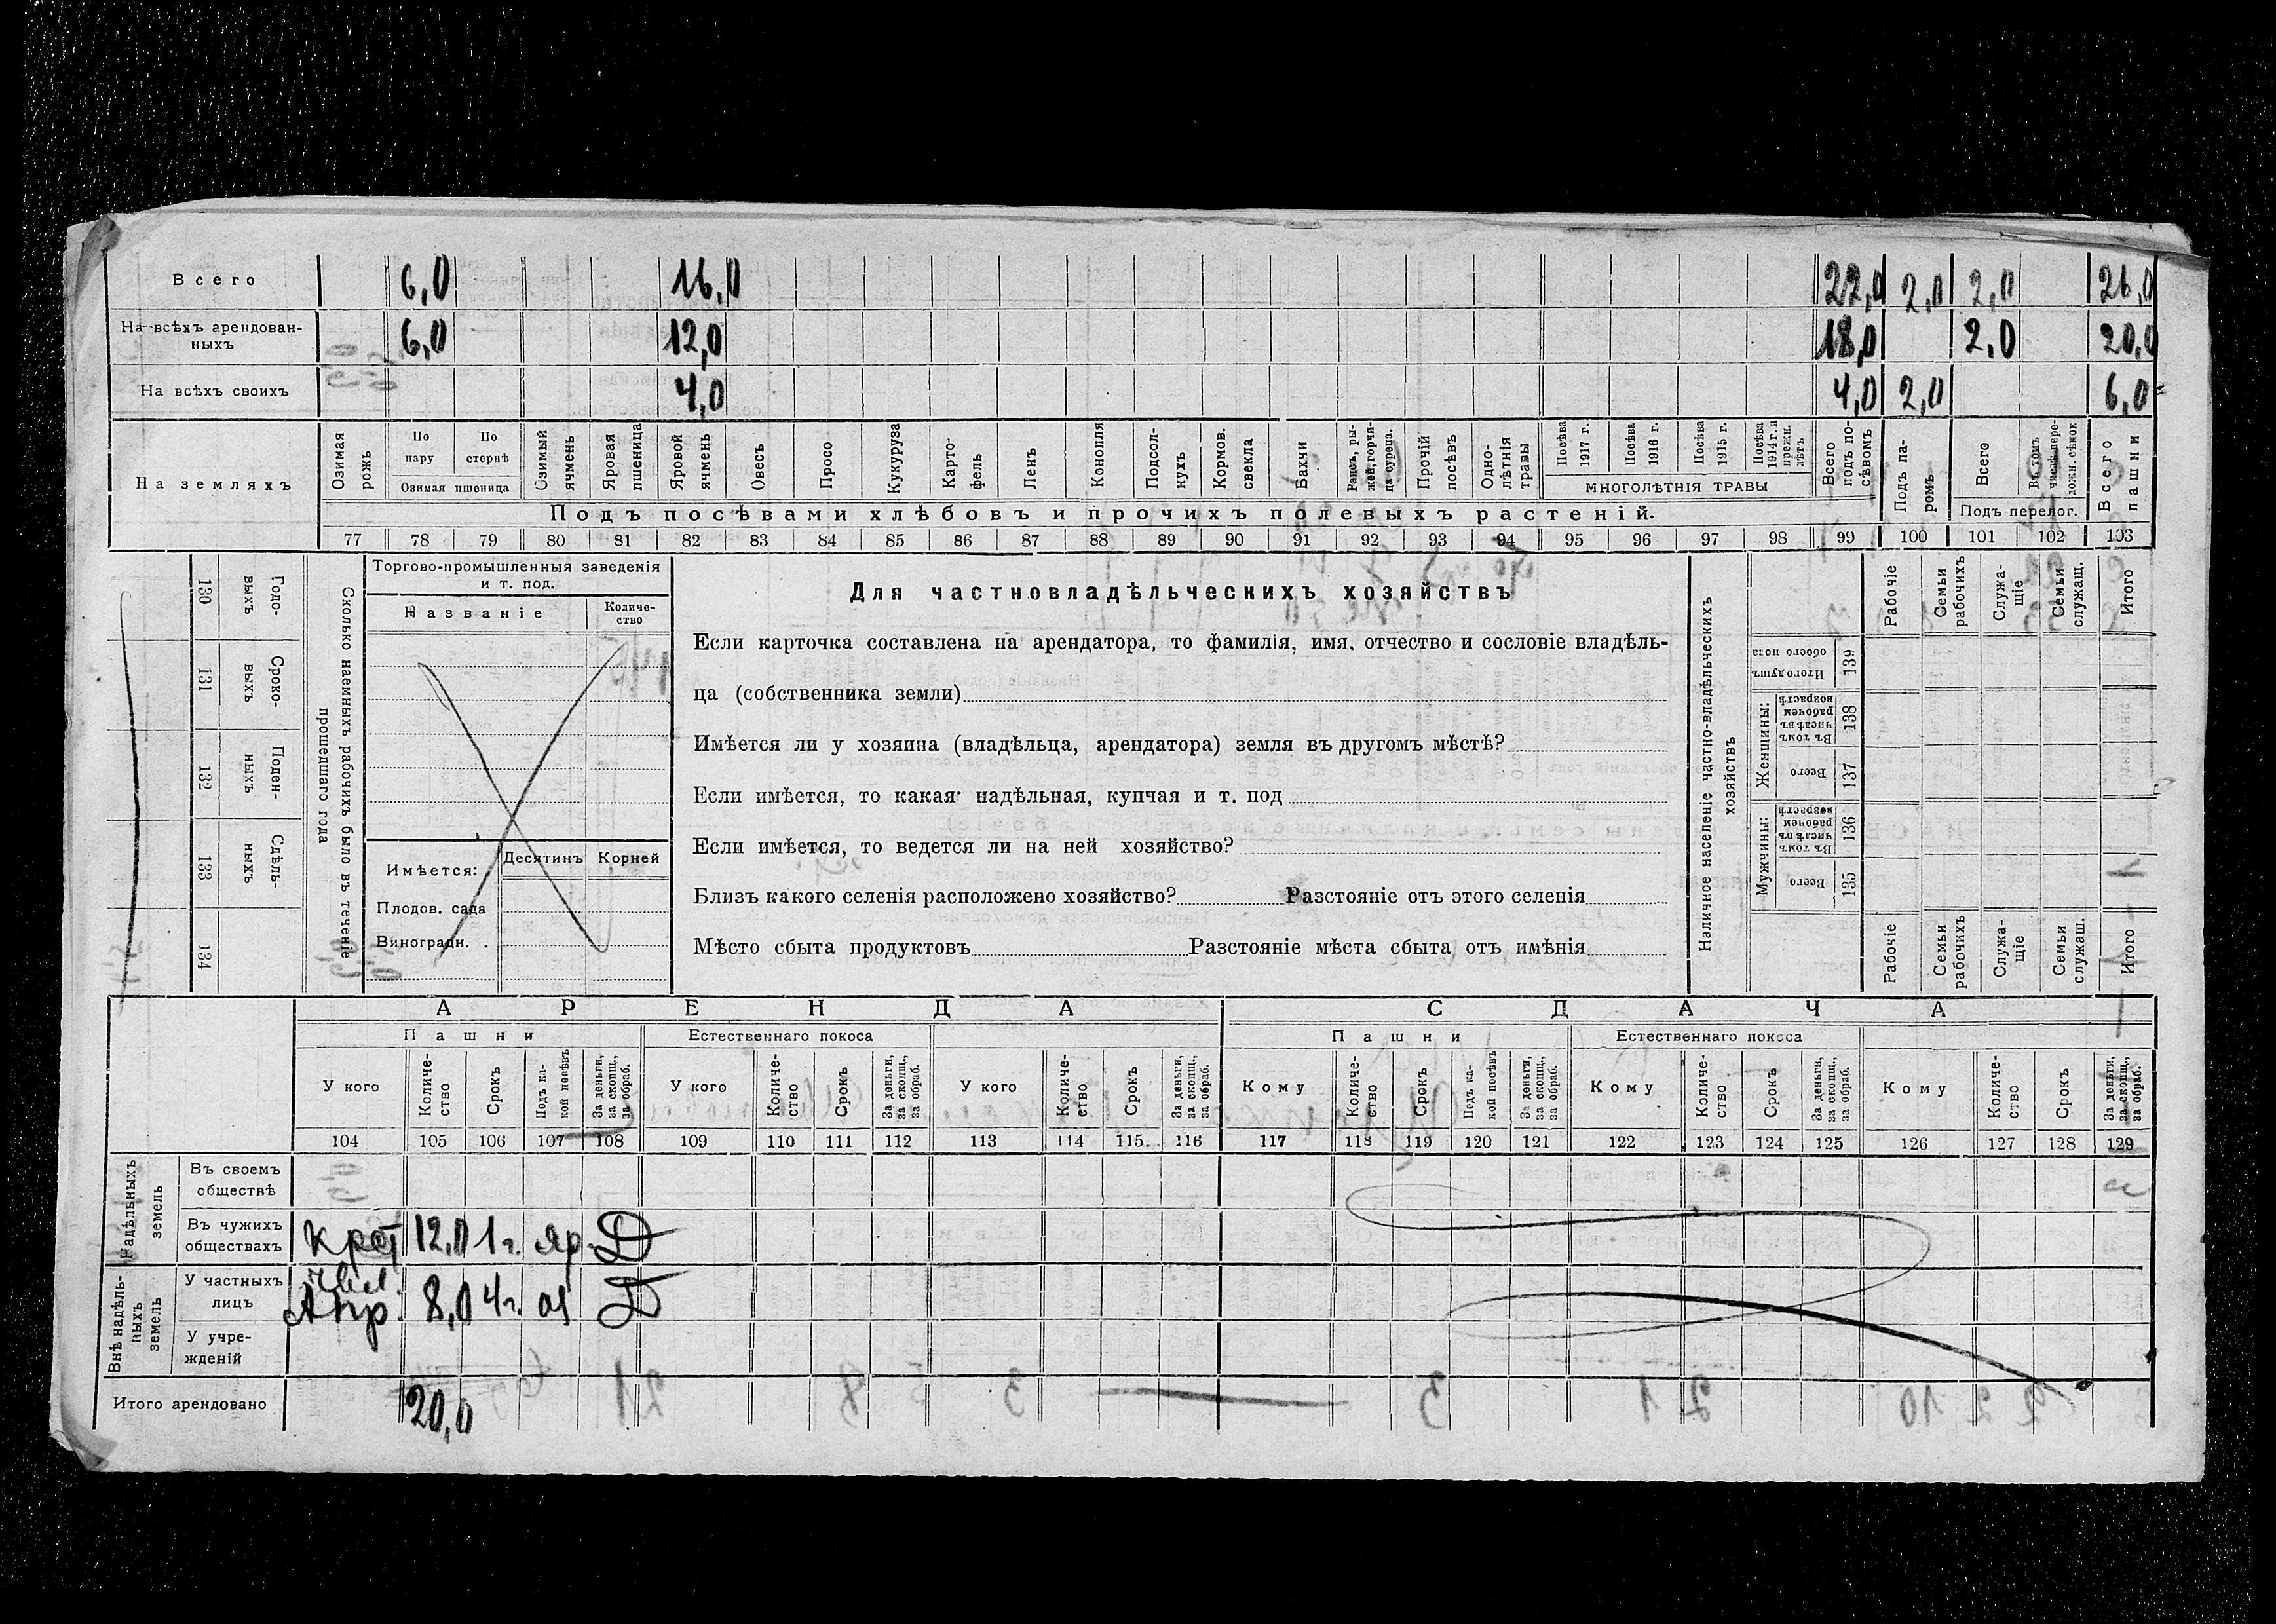 Всего 6,0 16,0 22,0 2,0 2,0 26,0
На всѣхъ арендован-
ныхъ 6,0 12,0 18,0 2,0 20,0
На всѣхъ своихъ 4,0 4,0 2,0 6,0
На земляхъ
Озимая рожь
По пару
По стернѣ
Озимая пшеница
Озимый ячмень
Яровая пшеница
Яровой ячмень
Овесъ
Просо
Кукуруза
Карто-
фель
Ленъ
Конопля
Подсол-
нухъ
Кормов. свекла
Бахчи
Прочій посѣвъ
Одно-
лѣтнія травы
Посѣва 1917 г.
Посѣва 1916 г.
Посѣва 1915 г.
Посѣва 1914 г. и прежн. лѣтъ
МНОГОЛѢТНІЯ ТРАВЫ
Всего подъ по-
сѣвомъ
Подъ па-
ромъ
Всего
Подъ перелог.
Всего пашни
Подъ посѣвами хлѣбовъ и прочихъ полевыхъ растеній.
77 78 79 80 81 82 83 84 85 86 87 88 89 90 91 92 93 94 95 96 97 98 99 100 101 102 103
130 Годо-
выхъ
131 Сроко-
выхъ
132 Поден-
ныхъ
133 Сдѣль-
ныхъ
134
Сколько наемныхъ рабочихъ было въ теченіе
прошедшаго года
Торгово-промышленныя заведенія
и т. под.
Названіе
Количе-
ство
Имѣется: Десятинъ Корней
Плодов. сада
Виноградн. .
Для частновладѣльческихъ хозяйствъ
Если карточка составлена на арендатора, то фамилія, имя, отчество и сословіе владѣль-
ца (собственника земли)
Имѣется ли у хозяина (владѣльца, арендатора) земля въ другомъ мѣстѣ?
Если имѣется, то какая надѣльная, купчая и т. под
Если имѣется, то ведется ли на ней хозяйство?
Близъ какого селенія расположено хозяйство? Разстояніе отъ этого селенія
Мѣсто сбыта продуктовъ Разстояніе мѣста сбыта отъ имѣнія
Наличное населеніе частно-владѣльческихъ
хозяйствъ
Рабочіе
Семьи рабочихъ
Служа-
щіе
Семьи служащ.
Итого
Итого душъ обоего пола 139
Женщины:
Въ томъ числѣ въ рабочемъ возрастѣ 138
Всего 137
Мужчины:
Въ томъ числѣ въ рабочемъ возрастѣ 136
Всего 135
Рабочіе
Семьи рабочихъ
Служа-
щіе
Семьи служащ.
Итого
АРЕНДА СДАЧА
Пашни Естественнаго покоса Пашни Естественнаго покоса
У кого
Количе-
ство
Срокъ
Подъ ка-
кой посѣвъ
За деньги, за скопщ., за обраб.
У кого
Количе-
ство
Срокъ
За деньги, за скопщ., за обраб.
У кого
Количе-
ство
Срокъ
За деньги, за скопщ., за обраб.
Кому
Количе-
ство
Срокъ
Подъ ка-
кой посѣвъ
За деньги, за скопщ., за обраб.
Кому
Количе-
ство
Срокъ
За деньги, за скопщ., за обраб.
Кому
Количе-
ство
Срокъ
За деньги, за скопщ., за обраб.
104 105 106 107 108 109 110 111 112 113 114 115 116 117 118 119 120 121 122 123 124 125 126 127 128 129
Надѣльныхъ земель
Въ своемъ
обществѣ
Въ чужихъ
обществахъ 12,0 1 г. яр. Д
Внѣ надѣль-
ныхъ земель
У частныхъ
лицъ 8,0 4 г. оз Д
У учре-
жденій
Итого арендовано 20,0